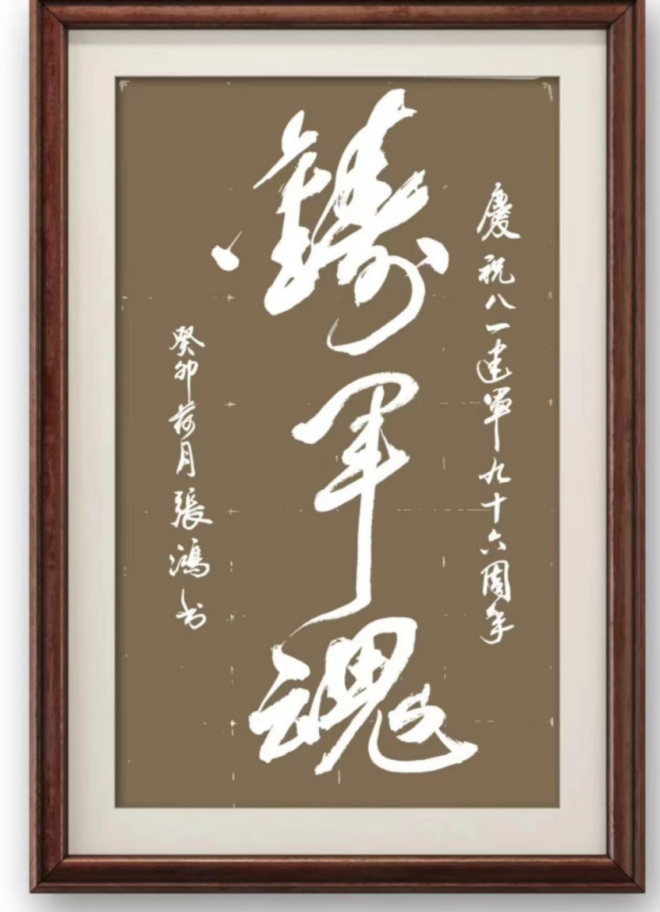 慶祝八一建軍九十六周年
鑄軍魂
癸卯荷月張鴻书